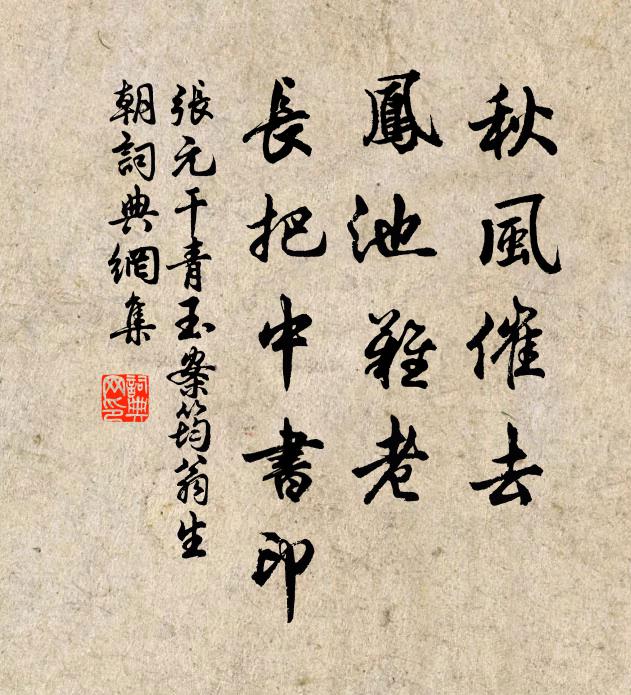 秋風催去
鳳池難老
長把中書印
張元干青玉案筠翁生
朝詞典網集
詞典
网印